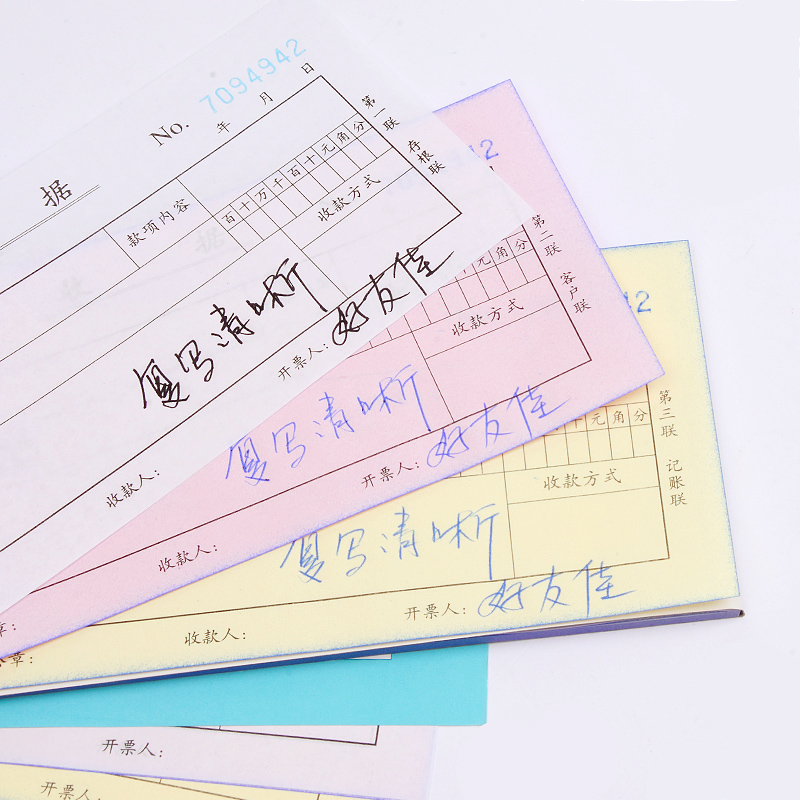 No. 7094942
年 月 日
据
款项内容
百十万千百十元角分
收款方式
第一联 存根联
复写清晰
开票人: 好友佳
收款人:
42
元角分
收款方式
第二联 客户联
复写清晰
开票人: 好友佳
收款人:
章:
42
元角分
收款方式
第三联 记账联
复写清晰
开票人: 好友佳
收款人:
章:
开票人:
开票人: